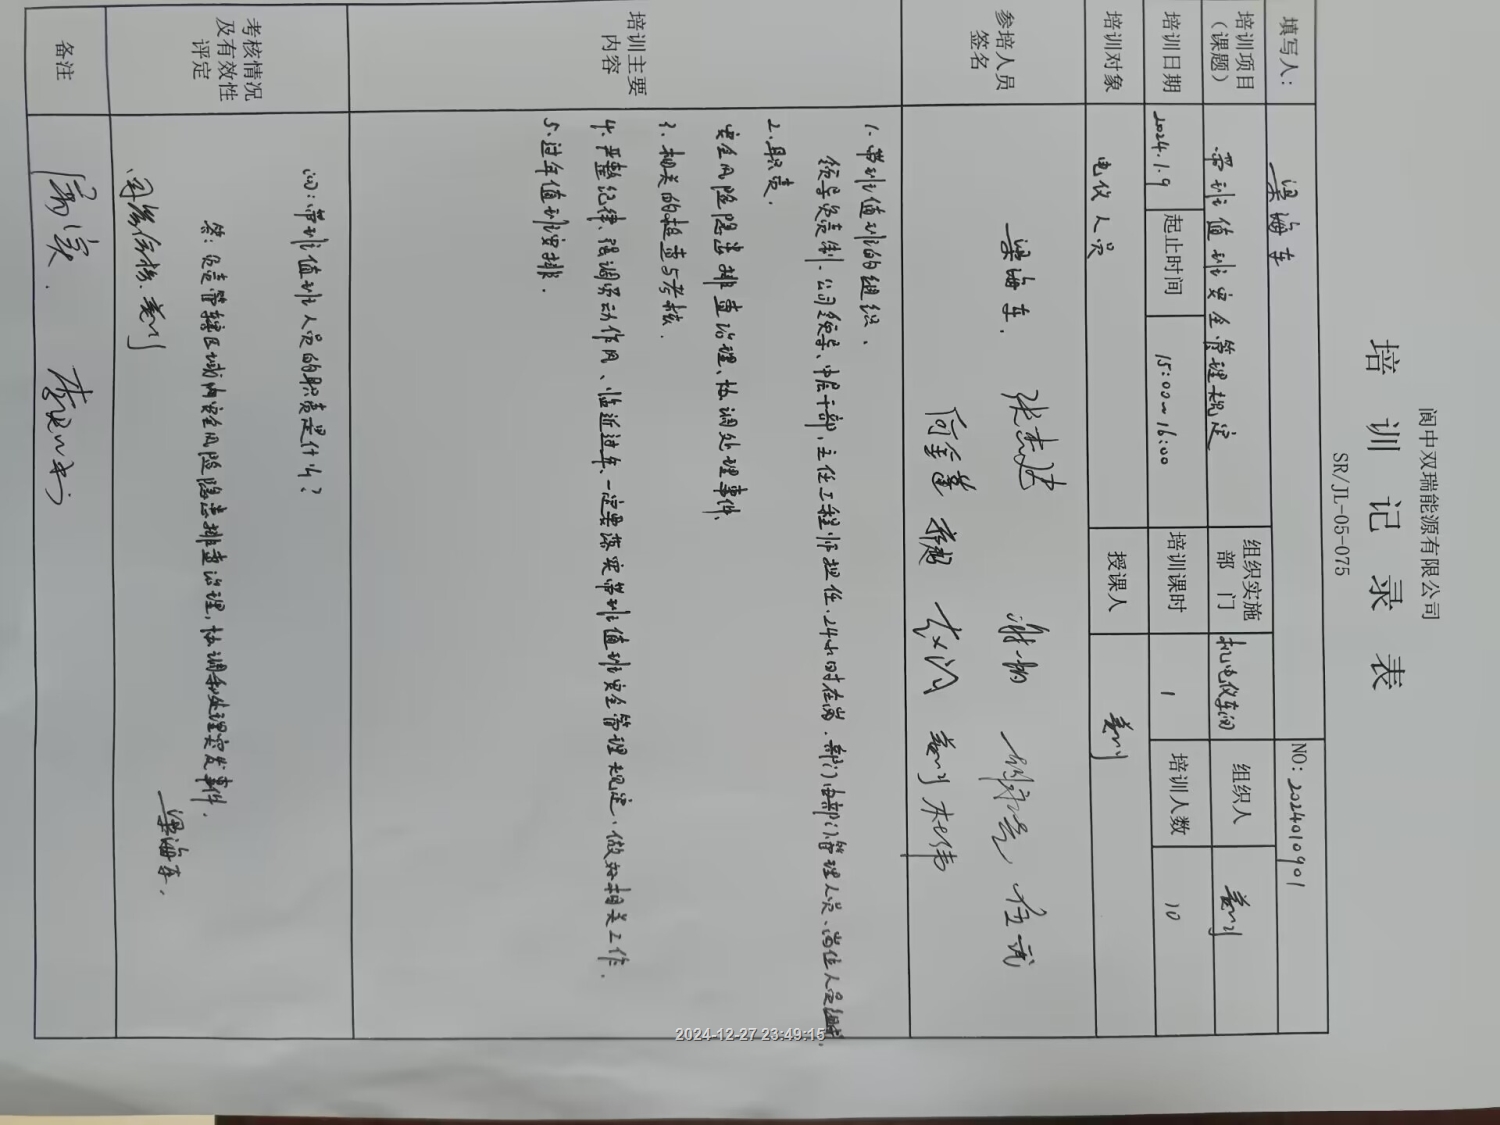 阆中双瑞能源有限公司
培 训 记 录 表
SR/JL-05-075
填写人: 梁海车 NO: 2024010901
培训项目（课题） 带班值班安全管理规定 组织实施部门 机电仪车间 组织人 姜川
培训日期 2024.1.9 起止时间 15:00~16:00 培训课时 1 培训人数 10
培训对象 电仪人员 授课人 姜川
参培人员签名
梁海车.
姜川
培训主要内容
1. 带班值班的组织、
领导负责制. 公司领导、中层干部、主任工程师担任. 24小时在岗. 部门由部门管理人员、岗位人员组成.
2. 职责.
安全风险隐患排查治理、协调处理事件、
3. 相关的检查与考核.
4. 严整纪律、强调劳动作风、临近过年、一定要落实带班值班安全管理规定, 做好相关工作.
5. 过年值班安排.
考核情况及有效性评定
问: 带班值班人员的职责是什么?
答: 负责管辖区域内安全风险隐患排查治理, 协调和处理突发事件.
梁海车.
姜川
备注
2024-12-27 23:49:15